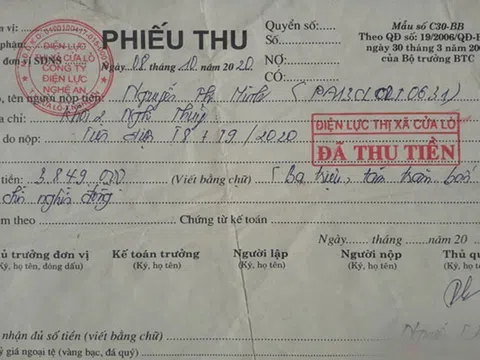 n vị:
phận:
đơn vị SDNS
ĐIỆN LỰC
THỊ XÃ CỬA LÒ
CÔNG TY
ĐIỆN LỰC
NGHỆ AN
PHIẾU THU
Ngày 08 tháng 10 năm 2020
Quyển số:
Số:
NỢ:
CÓ:
Mẫu số C30-BB
Theo QĐ số: 19/2006/QĐ-B
ngày 30 tháng 3 năm 200
của Bộ trưởng BTC
, tên người nộp tiền: Nguyễn Thị Minh (PA13CL
a chỉ: Khối 2 Nghi Thuỷ
do nộp: Tiền điện T8 + T9/2020
ĐIỆN LỰC THỊ XÃ CỬA LÒ
ĐÃ THU TIỀN
tiền: 3.849.000 (Viết bằng chữ) (Ba triệu, tám trăm bốn
chín nghìn đồng
m theo: Chứng từ kế toán
Ngày......tháng......năm 20
ủ trưởng đơn vị Kế toán trưởng Người lập Người nộp Thủ qu
ý, họ tên, đóng dấu) (Ký, họ tên) (Ký, họ tên) (Ký, họ tên) (Ký, họ
nhận đủ số tiền (viết bằng chữ)
ỷ giá ngoại tệ (vàng bạc, đá quý)